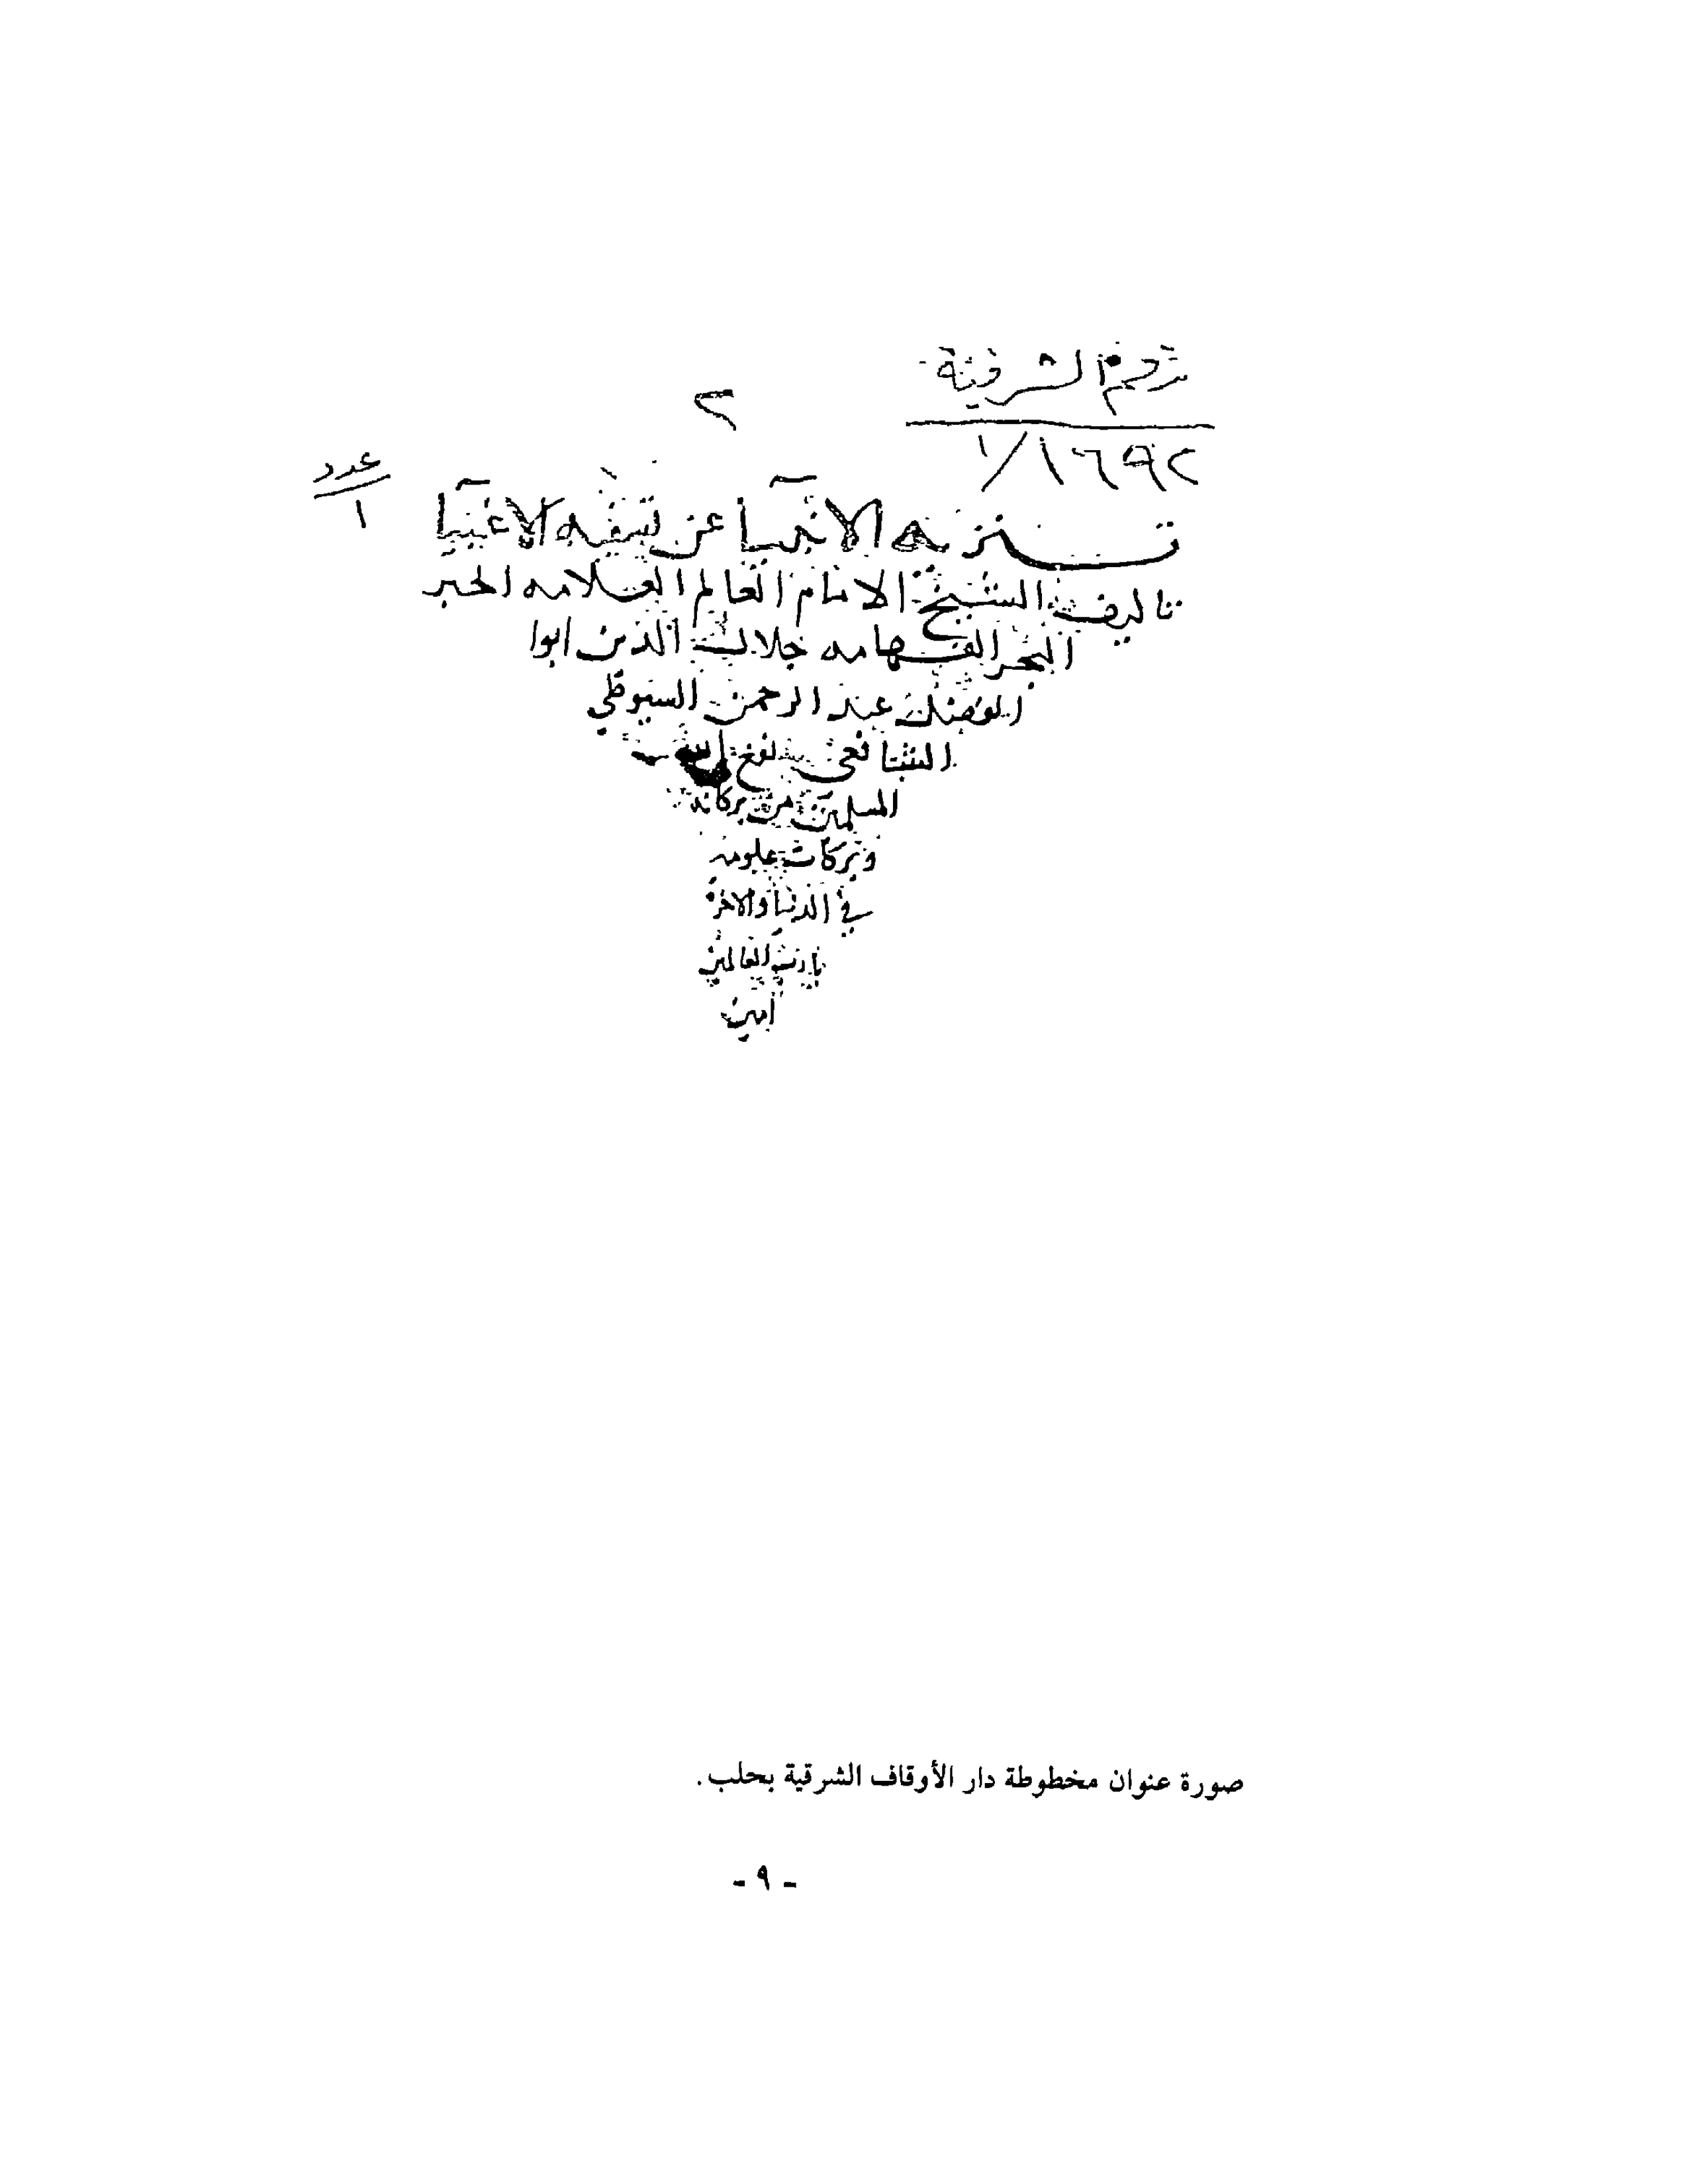 رقم الشرقية
١٦٩٢/١
٢
عدد
١
تنزيه الانبيآ عن تسفيه الاغبيآ
تاليف الشيخ الامام العالم العلامه الحبر
البحر الفهامه جلال الدين ابوا
الفضل عبد الرحمن السيوطي
الشافعي نفع الله
المسلمين من بركاته
وبركات علومه
في الدنيا والاخرة
يا رب العالمين
امين
صورة عنوان مخطوطة دار الأوقاف الشرقية بحلب.
- ٩ -